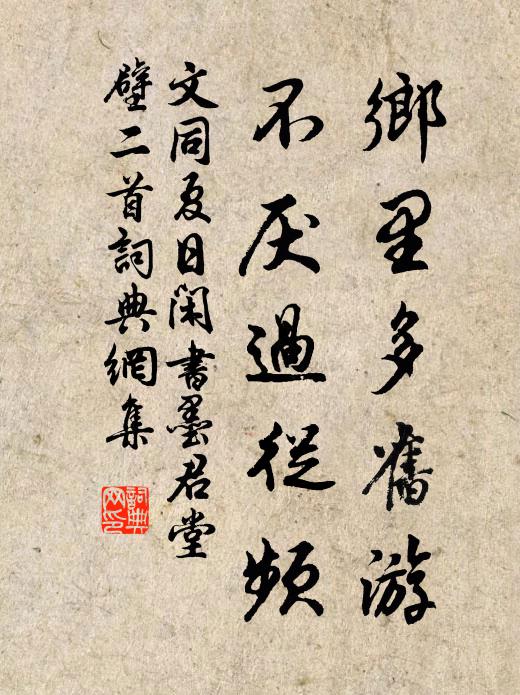 鄉里多舊游
不厌過從頻
文同夏日闲書墨君堂
壁二首詞典網集
詞典網印